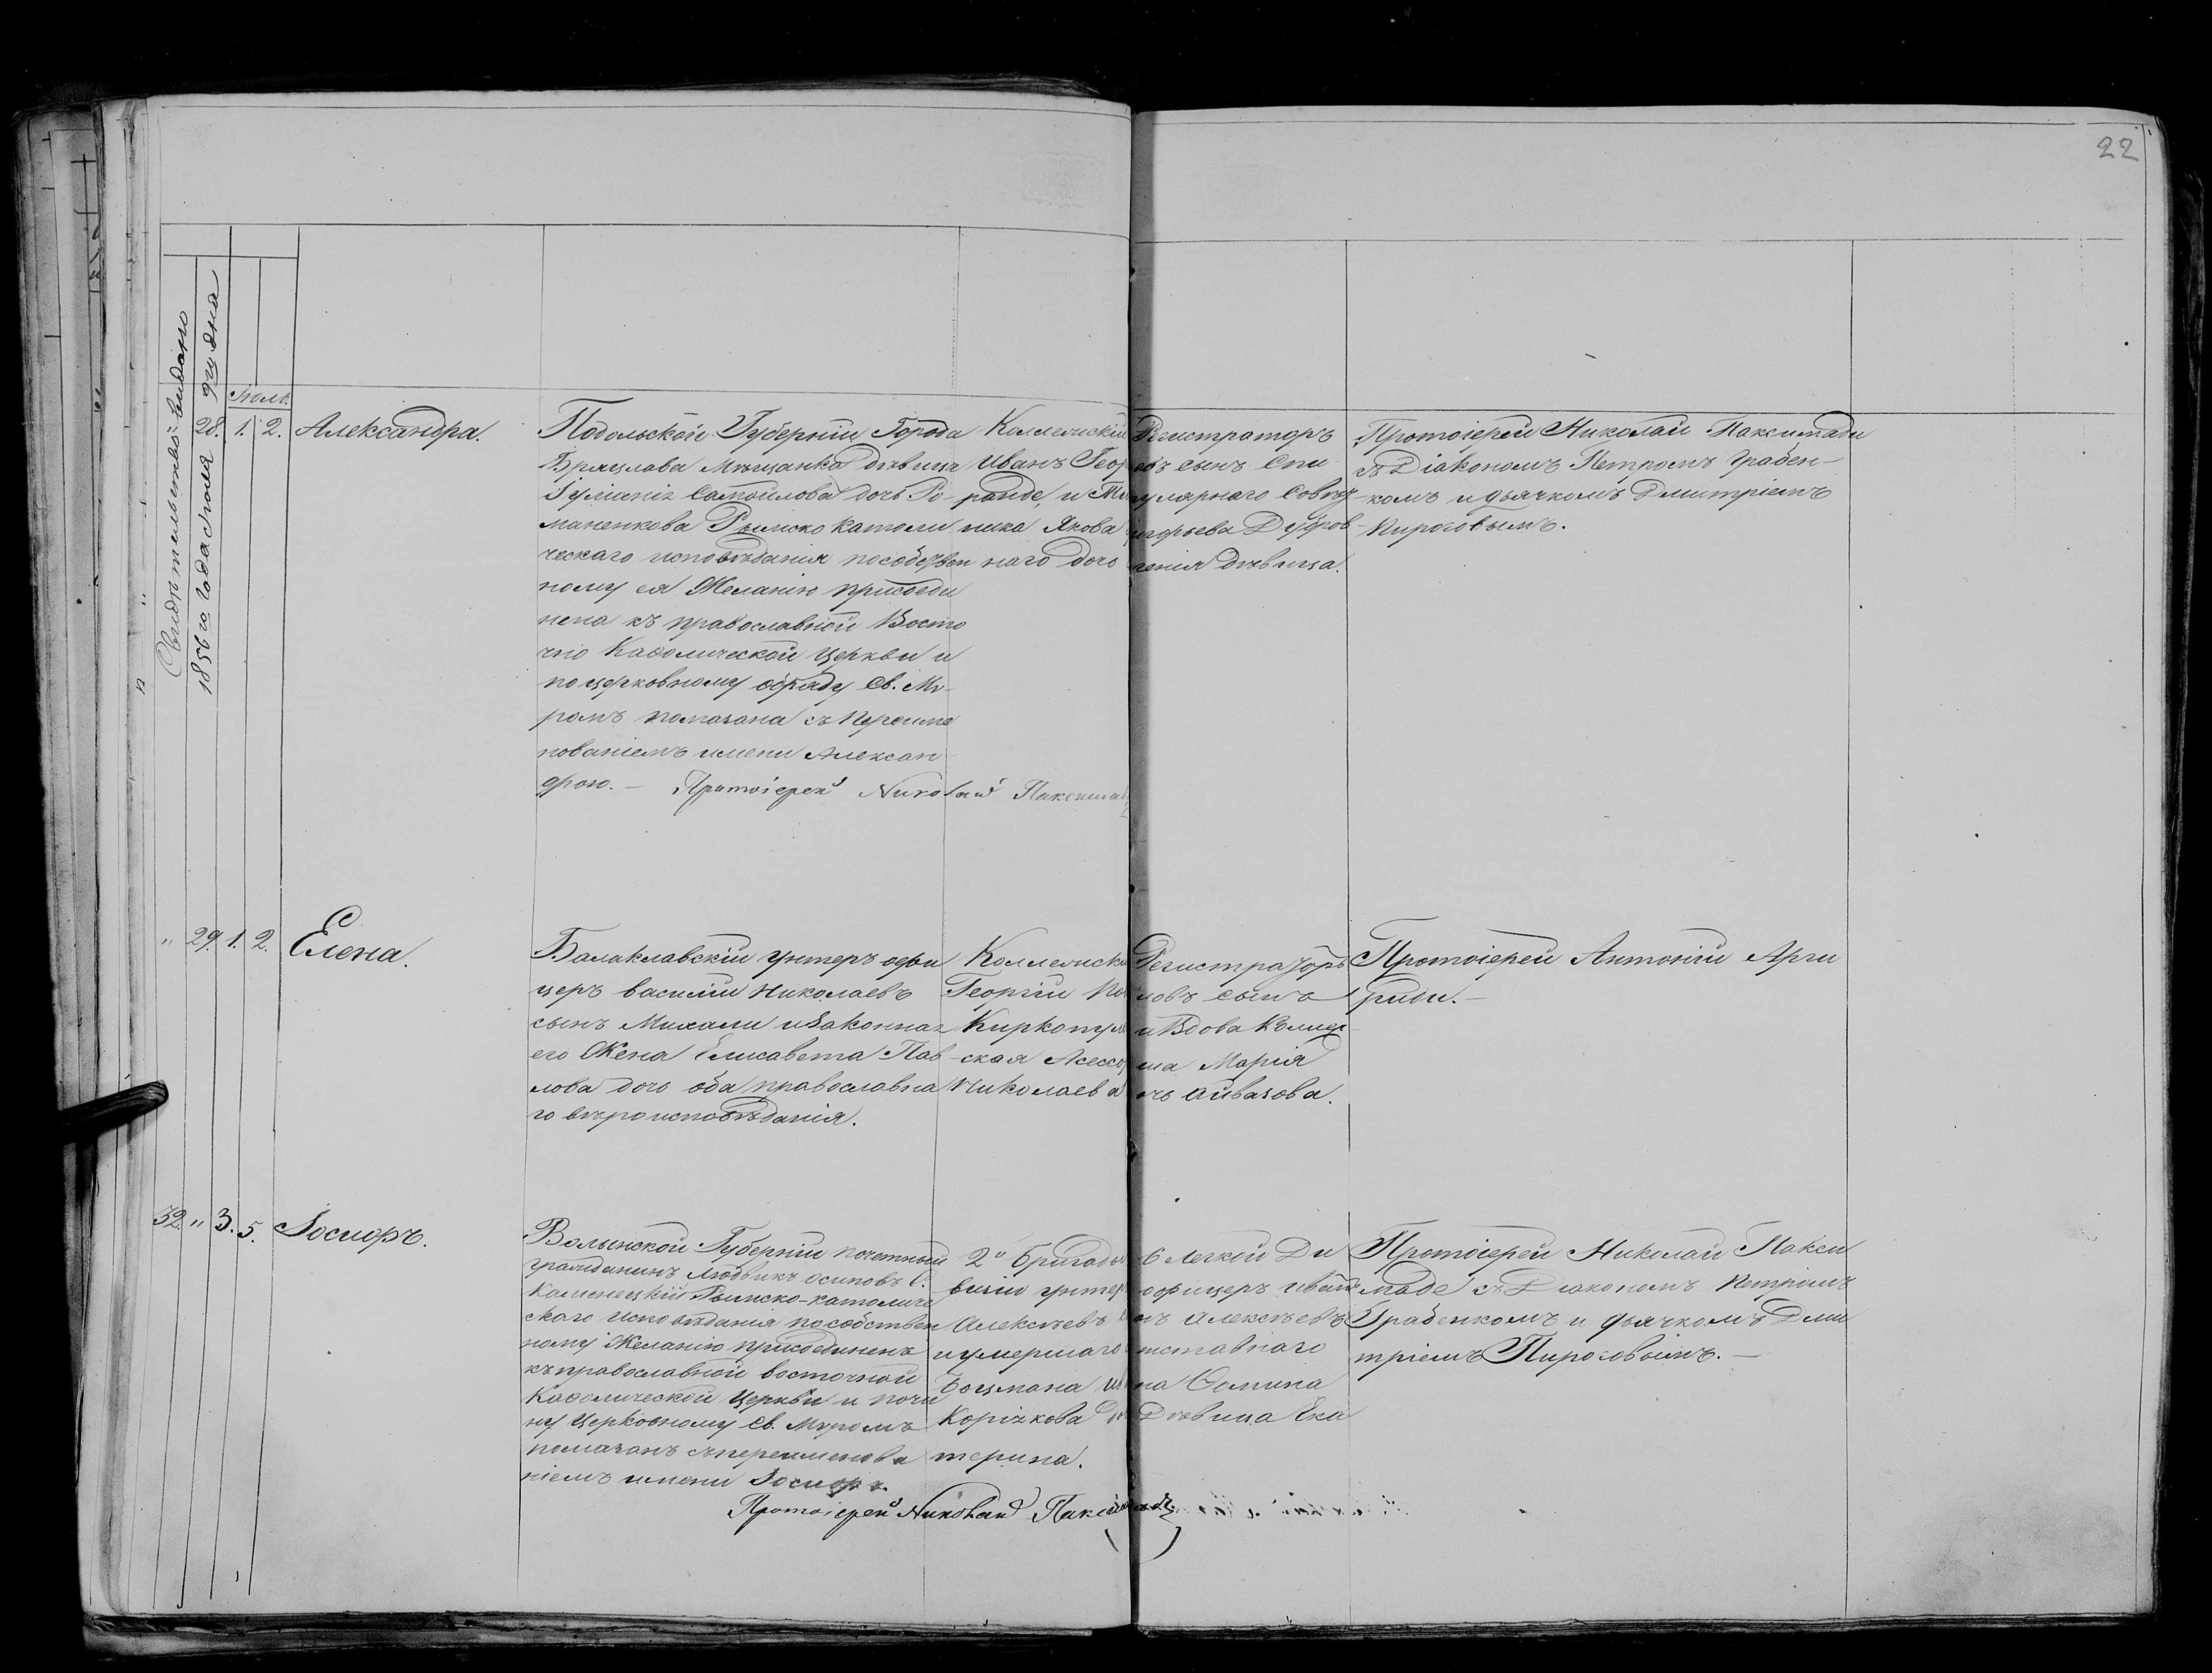 22
Свидѣтельство выдано
1856 го года Іюля 9 дня
Іюль.
28. 1. 2. Александра.
Подольской Губерніи Города
Брацлава Мѣщанка дѣвица
Самойлова дочь Ро-
маненкова Римско Католи
ческаго исповѣданія по собствен
ному ея Желанію присоеди
нена къ православной Восто
чно Каѳолической Церкви и
по церковному обряду Св. Мѵ-
ромъ помазана съ переиме
нованіемъ имени Алексан-
дрою. — Протоіерей Николай
Коллежскій Регистраторъ
Иванъ Сынъ Спи-
ранде, и совѣт
ника Якова Дубров-
наго дочь дѣвица.
Протоіерей Николай Паксимади
съ Діакономъ Петромъ Грабен-
комъ и дьячкомъ Дмитріемъ
Пироговымъ.
" 29. 1. 2. Елена.
Балаклавскій унтеръ офи
церъ василій Николаевъ
сынъ Михали и законная
его Жена Елисавета Пав
лова дочь оба православна
го вѣроисповѣданія.
Регистраторъ
Георгій сынъ
и Вдова
ская Марія
Николаева Айвазова.
Протоіерей Антоній Арги
риди. —
32. " 3. 5. Іосифъ.
Волынской Губерніи почетный
гражданинъ Людвикъ Осиповъ С.
Каменецкій Римско-католиче
скаго исповѣданія по собствен
ному Желанію присоединенъ
къ православной восточной
Каѳолической Церкви и по чи
ну Церковному Св. Мѵромъ
помазанъ съ переименова
ніемъ имени Іосифъ.
Протоіерей Николай
2й Бригады 6 легкой Ди
визіи унтеръ офицеръ
Алексѣевъ Алексѣевъ
и умершаго отставнаго
Боцмана Ѳомина
Дѣвица Ека
терина.
Протоіерей Николай Пакси
мади съ Діакономъ Петромъ
Грабенкомъ и дьячкомъ Дми
тріемъ Пироговымъ. —